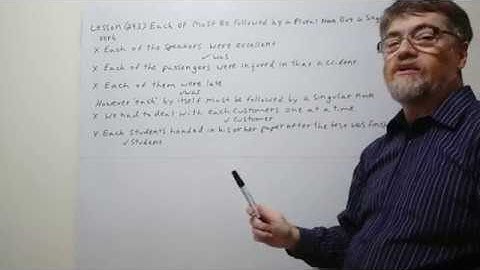 Lesson (243) Each of Must Be followed by a Plural Noun But a Sing
verb
X Each of the speakers were excellent
✓ was
X Each of the passengers were injured in that accident
X Each of them were late
✓ was
However "each" by itself must be followed by a singular noun
X We had to deal with each customers one at a time
✓ customer
X Each students handed in his or her paper after the test was finish
✓ student